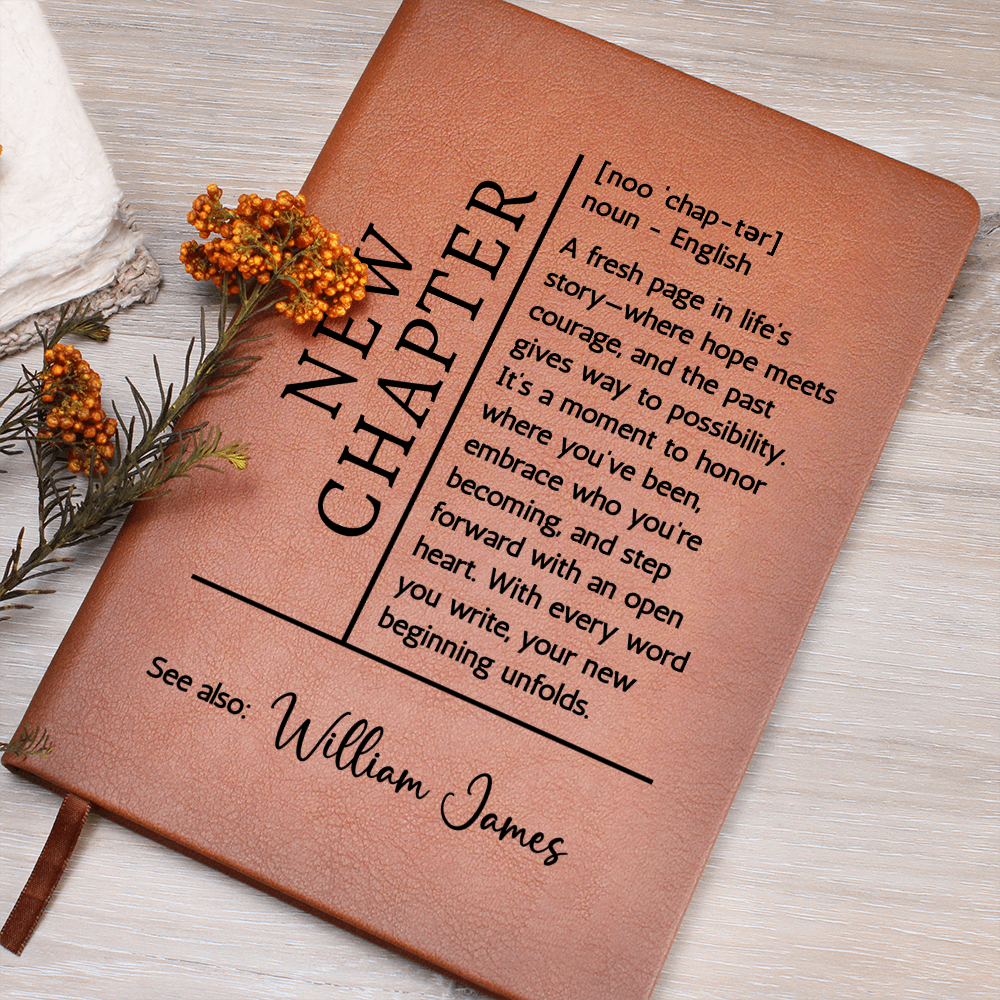 NEW
CHAPTER
[noo ˈchap-tər]
noun - English
A fresh page in life's
story—where hope meets
courage, and the past
gives way to possibility.
It's a moment to honor
where you've been,
embrace who you're
becoming, and step
forward with an open
heart. With every word
you write, your new
beginning unfolds.
See also: William James